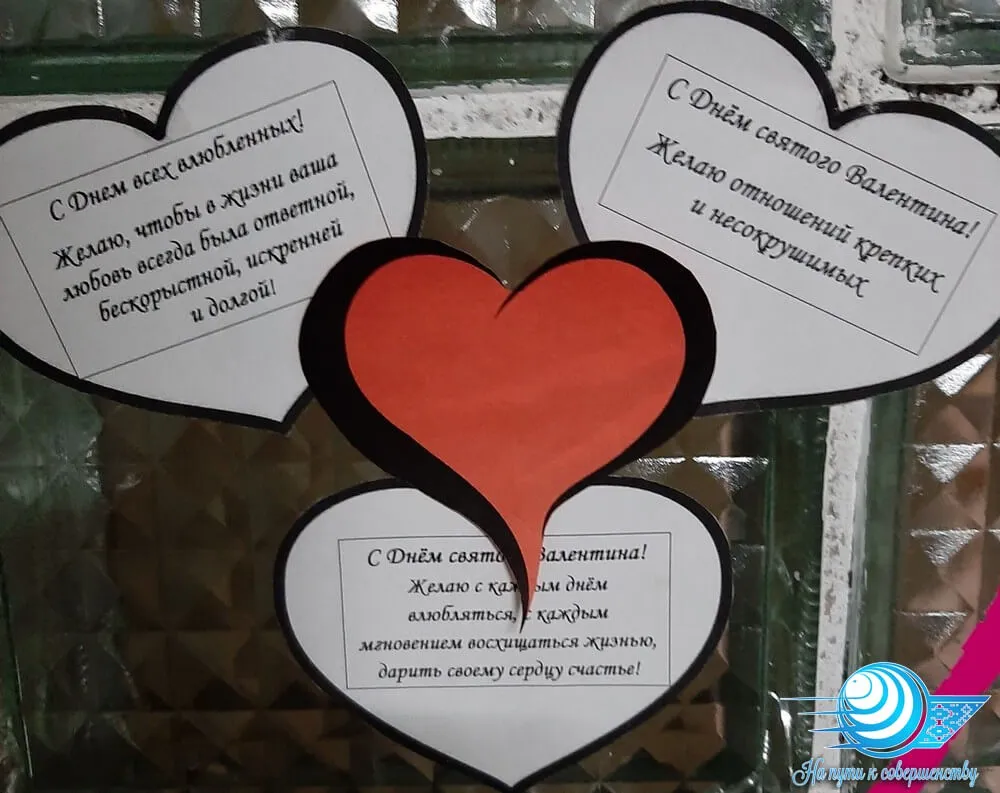 С Днем всех влюбленных!
Желаю, чтобы в жизни ваша
любовь всегда была ответной,
бескорыстной, искренней
и долгой!
С Днём святого Валентина!
Желаю отношений крепких
и несокрушимых
С Днём святого Валентина!
Желаю с каждым днём
влюбляться, с каждым
мгновением восхищаться жизнью,
дарить своему сердцу счастье!
На пути к совершенству